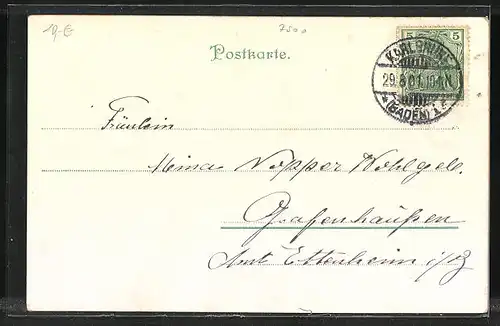 10,-G
2500
Postkarte.
5 5
KARLSRUHE
29.8.01.10-11V
*(BADEN)1*
Fräulein
Mina Nopper Wohlgeb.
Grafenhaußen
Amt Ettenheim i/B